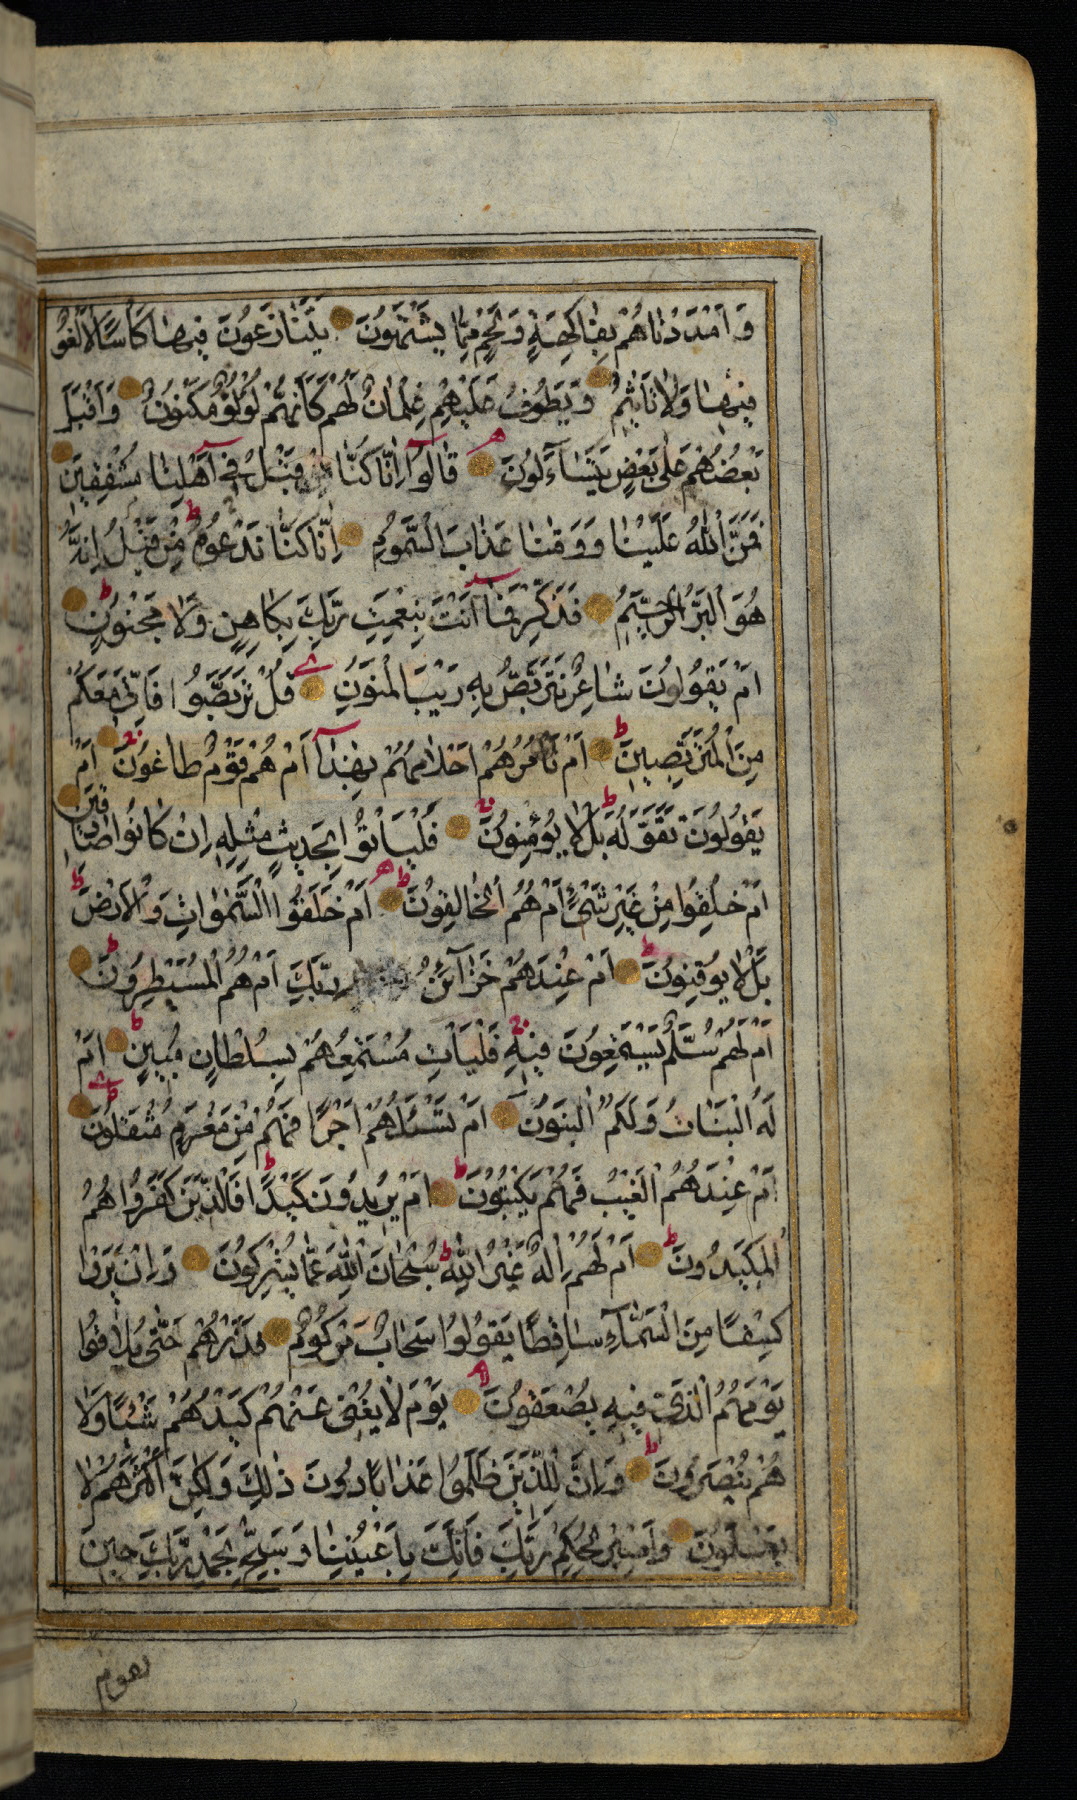 وَاَمْدَدْنَاهُمْ بِفَاكِهَةٍ وَلَحْمٍ مِمَّا يَشْتَهُونَ يَتَنَازَعُونَ فِيهَا كَأْسًا لَا لَغْوٌ
فِيهَا وَلَا تَأْثِيمٌ وَيَطُوفُ عَلَيْهِمْ غِلْمَانٌ لَهُمْ كَاَنَّهُمْ لُؤْلُؤٌ مَكْنُونٌ وَاَقْبَلَ
بَعْضُهُمْ عَلَى بَعْضٍ يَتَسَآءَلُونَ قَالُوٓا اِنَّا كُنَّا مِنْ قَبْلُ فِىٓ اَهْلِنَا مُشْفِقِينَ
فَمَنَّ اللّٰهُ عَلَيْنَا وَوَقٰنَا عَذَابَ السَّمُومِ اِنَّا كُنَّا نَدْعُوهُ مِنْ قَبْلُ اِنَّهُ
هُوَ الْبَرُّ الرَّحِيمُ فَذَكِّرْ فَمَآ اَنْتَ بِنِعْمَتِ رَبِّكَ بِكَاهِنٍ وَلَا مَجْنُونٍ
اَمْ يَقُولُونَ شَاعِرٌ نَتَرَبَّصُ بِهِ رَيْبَ الْمَنُونِ قُلْ تَرَبَّصُوا فَاِنِّى مَعَكُمْ
مِنَ الْمُتَرَبِّصِينَ اَمْ تَأْمُرُهُمْ اَحْلَامُهُمْ بِهٰذَآ اَمْ هُمْ قَوْمٌ طَاغُونَ اَمْ
يَقُولُونَ تَقَوَّلَهُ بَلْ لَا يُؤْمِنُونَ فَلْيَأْتُوا بِحَدِيثٍ مِثْلِهِ اِنْ كَانُوا صَادِقِينَ
اَمْ خُلِقُوا مِنْ غَيْرِ شَىْءٍ اَمْ هُمُ الْخَالِقُونَ اَمْ خَلَقُوا السَّمٰوَاتِ وَالْاَرْضَ
بَلْ لَا يُوقِنُونَ اَمْ عِنْدَهُمْ خَزَآئِنُ رَبِّكَ اَمْ هُمُ الْمُسَيْطِرُونَ
اَمْ لَهُمْ سُلَّمٌ يَسْتَمِعُونَ فِيهِ فَلْيَأْتِ مُسْتَمِعُهُمْ بِسُلْطَانٍ مُبِينٍ اَمْ
لَهُ الْبَنَاتُ وَلَكُمُ الْبَنُونَ اَمْ تَسْـَٔلُهُمْ اَجْرًا فَهُمْ مِنْ مَغْرَمٍ مُثْقَلُونَ
اَمْ عِنْدَهُمُ الْغَيْبُ فَهُمْ يَكْتُبُونَ اَمْ يُرِيدُونَ كَيْدًا فَالَّذِينَ كَفَرُوا هُمُ
الْمَكِيدُونَ اَمْ لَهُمْ اِلٰهٌ غَيْرُ اللّٰهِ سُبْحَانَ اللّٰهِ عَمَّا يُشْرِكُونَ وَاِنْ يَرَوْا
كِسْفًا مِنَ السَّمَآءِ سَاقِطًا يَقُولُوا سَحَابٌ مَرْكُومٌ فَذَرْهُمْ حَتّٰى يُلَاقُوا
يَوْمَهُمُ الَّذِى فِيهِ يُصْعَقُونَ يَوْمَ لَا يُغْنِى عَنْهُمْ كَيْدُهُمْ شَيْئًا وَلَا
هُمْ يُنْصَرُونَ وَاِنَّ لِلَّذِينَ ظَلَمُوا عَذَابًا دُونَ ذٰلِكَ وَلٰكِنَّ اَكْثَرَهُمْ لَا
يَعْلَمُونَ وَاصْبِرْ لِحُكْمِ رَبِّكَ فَاِنَّكَ بِاَعْيُنِنَا وَسَبِّحْ بِحَمْدِ رَبِّكَ حِينَ
تقوم